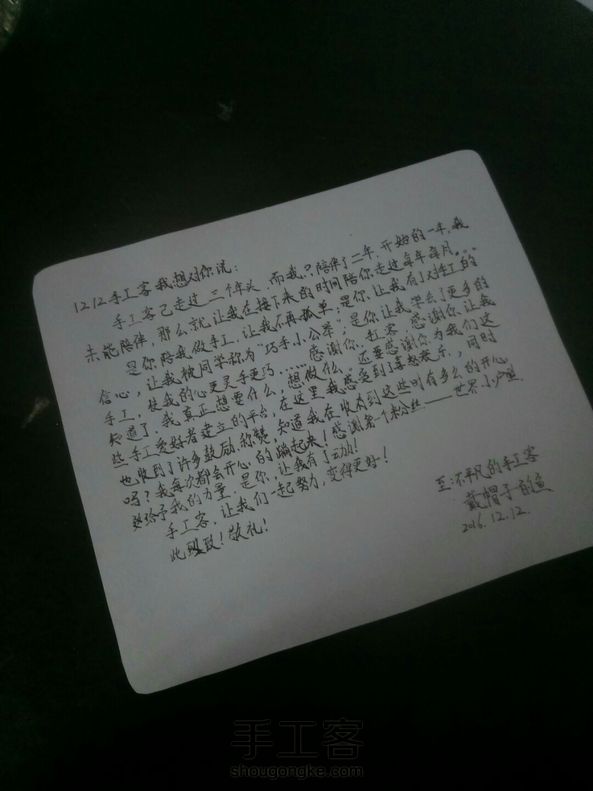 12.12手工客我想对你说:
手工客已走过三个年头,而我只陪伴了二年,开始的一年,我
未能陪伴,那么就让我在接下来的时间陪你走过每年每月……
是你,陪我做手工,让我不再孤单;是你,让我有了对手工的
信心,让我被同学称为“巧手小公举”;是你,让我学会了更多的
手工,使我的心更灵手更巧……感谢你,手工客,感谢你,让我
知道了,我真正想要什么,想做什么。还要感谢你,为我们这
些手工爱好者建立的平台,在这里,我感受到了喜怒哀乐,同时
也收到了许多鼓励、称赞,知道我在收到这些时有多么的开心
吗?我每次都会开心的蹦起来!感谢第一个粉丝——世界小
给予我的力量,是你,让我有了动力!
手工客,让我们一起努力,变得更好!
此致!敬礼!
至:不平凡的手工客
戴帽子的鱼
2016.12.12.
手工客
shougongke.com